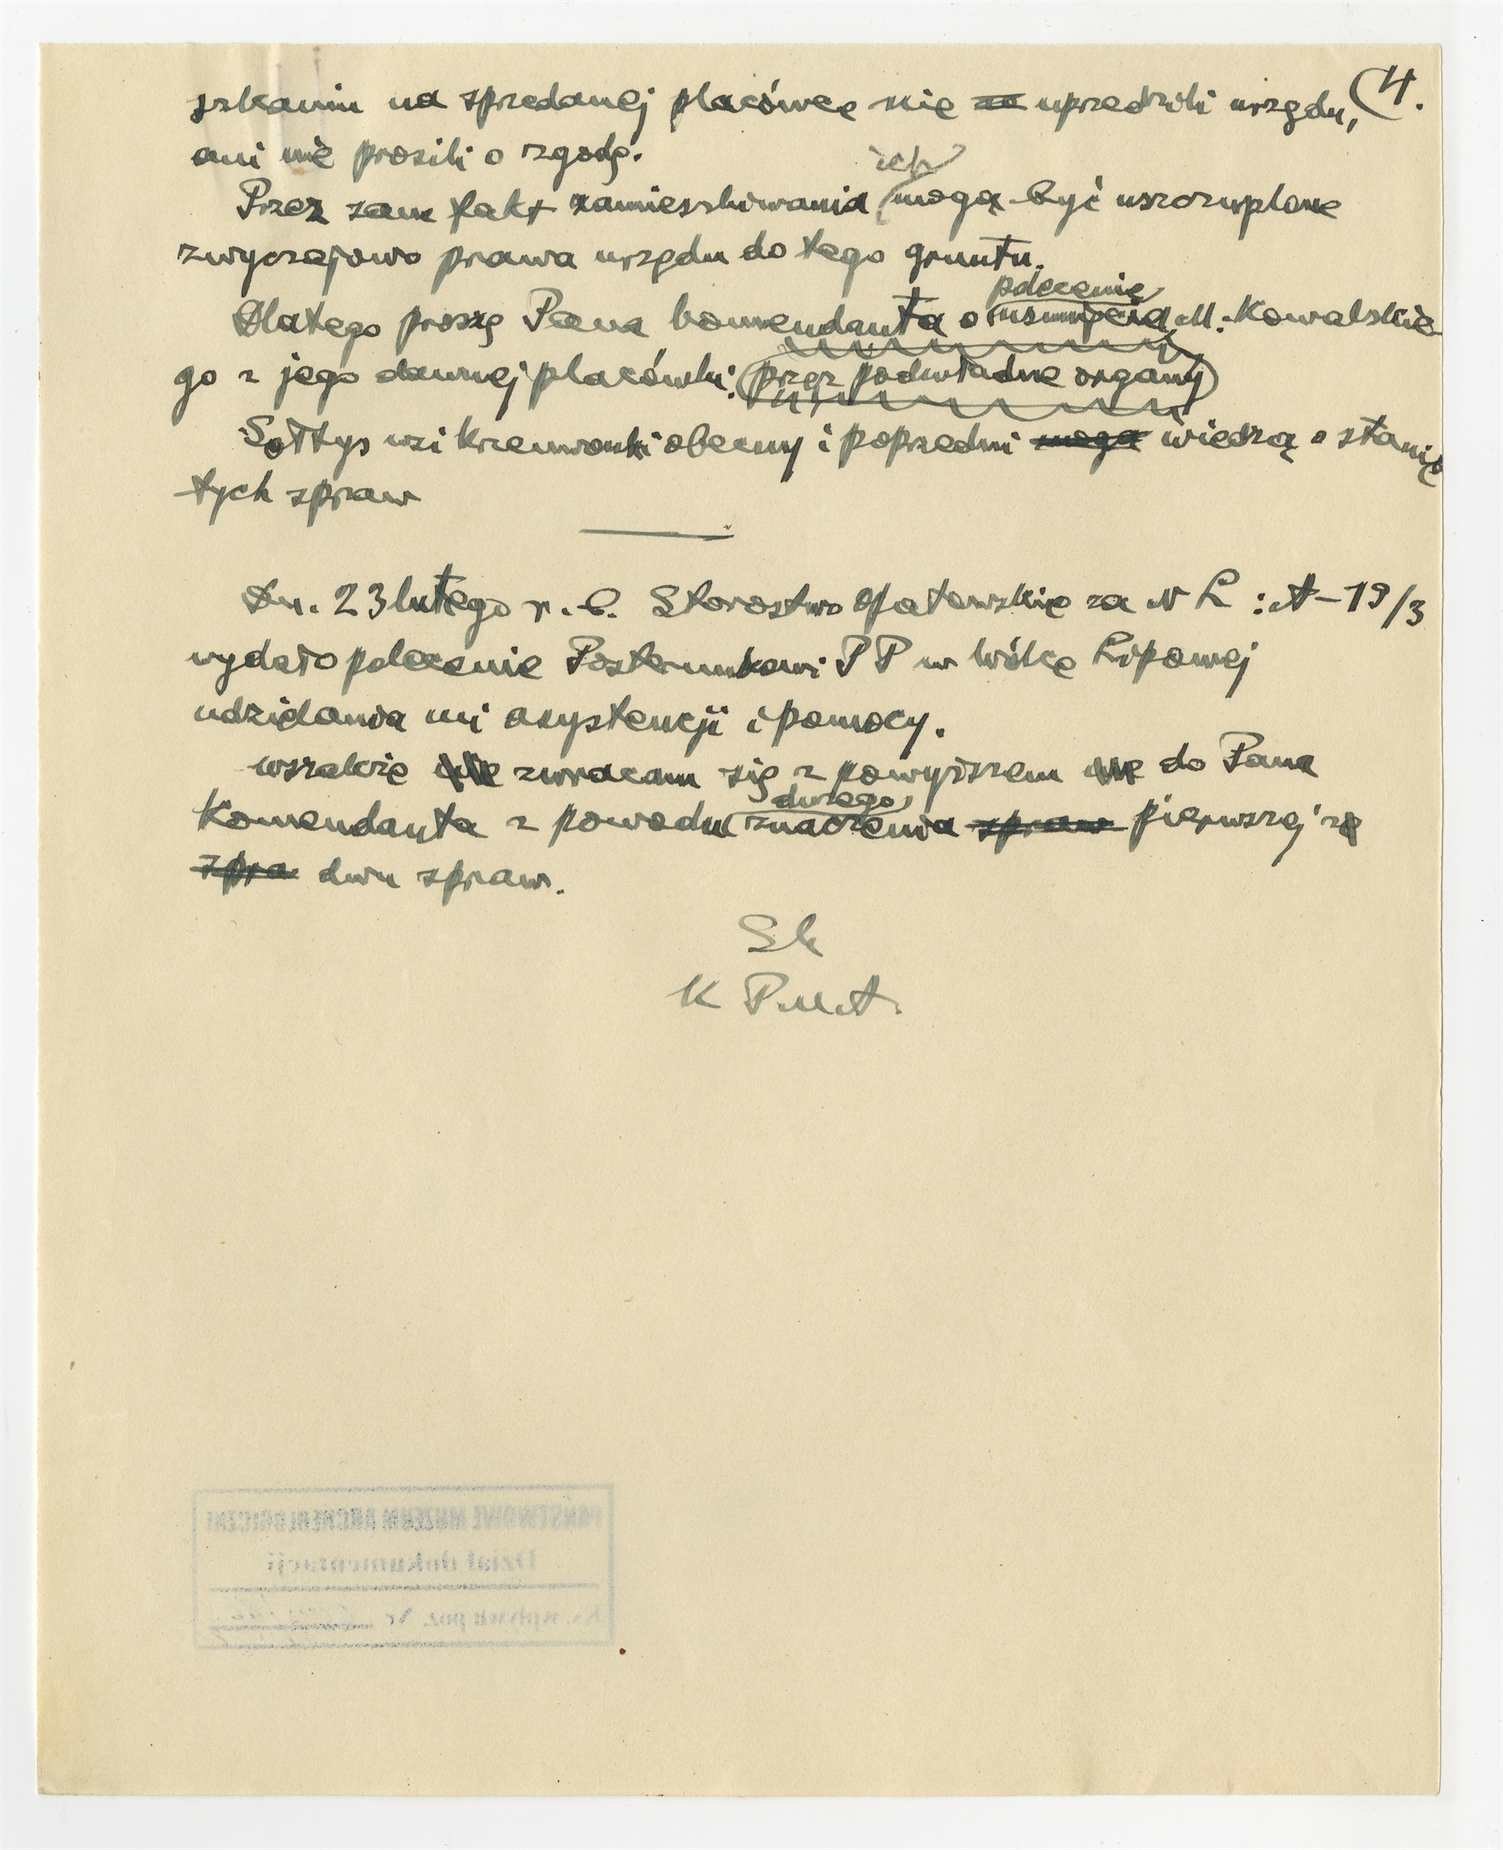 4.
szkaniu na sprzedanej placówce nie za uprzedzili urzędu,
ani nie prosili o zgodę.
ich
Przez sam fakt zamieszkiwania mogą być uszczuplone
zwyczajowo prawa urzędu do tego gruntu.
polecenie
Dlatego proszę Pana komendanta o usunięcia M. Kowalskie
go z jego dawnej placówki. (przez podwładne organy)
Sołtys wsi Krzemionki obecny i poprzedni mogą wiedzą o stanie
tych spraw
Dn. 23 lutego r. b. Starostwo Opatowskie za N L : A-19/3
wydało polecenie Posterunkowi PP w Wólce Lipowej
udzielania mi asystencji i pomocy.
wszakże zwracam się z powyższem do Pana
dużego
Komendanta z powodu znaczenia spraw pierwszej ze
spra dwu spraw.
Sk
K P.M.A.
PAŃSTWOWE MUZEUM ARCHEOLOGICZNE
Dział dokumentacji
Ks. wpływu poz. Nr